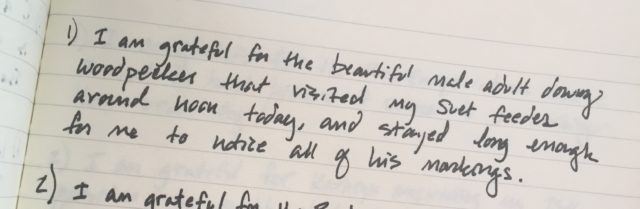 1) I am grateful for the beautiful male adult downy
woodpecker that visited my suet feeder
around noon today, and stayed long enough
for me to notice all of his markings.
2) I am grateful for the